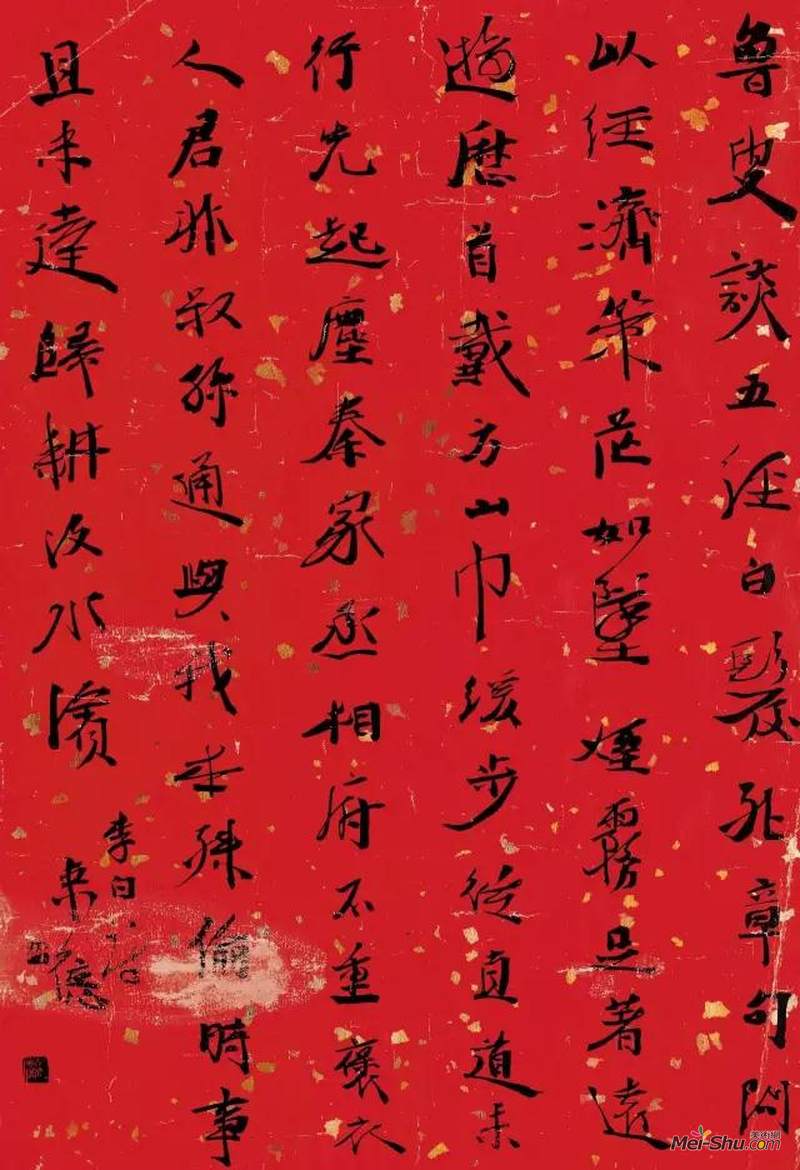 魯叟談五經白髮死章句問
以經濟策茫如墜煙霧足著遠
遊歷首戴方山巾緩步從直道未
行先起塵秦家丞相府不重褒衣
人君非叔孫通與我本殊倫時事
且未達歸耕汶水濱
李白詩
美術網
Mei-Shu.com